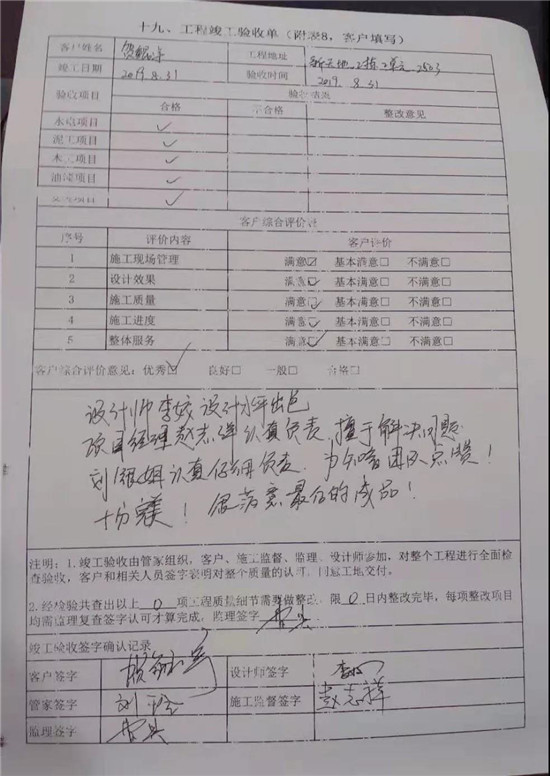 十九、工程竣工验收单（附表8，客户填写）
客户姓名 工程地址 新天地 2栋 2单元 2503
竣工日期 2019.8.31 验收时间 2019.8.31
验收项目 验收情况
合格 不合格 整改意见
水电项目 ✓
泥工项目 ✓
木工项目 ✓
油漆项目 ✓
安装项目 ✓
客户综合评价表
序号 评价内容 客户评价
1 施工现场管理 满意☑ 基本满意□ 不满意□
2 设计效果 满意☑ 基本满意□ 不满意□
3 施工质量 满意☑ 基本满意□ 不满意□
4 施工进度 满意☑ 基本满意□ 不满意□
5 整体服务 满意☑ 基本满意□ 不满意□
客户综合评价意见：优秀☑ 良好□ 一般□ 合格□
设计师李姣设计水平出色
项目经理赵志祥认真负责，擅于解决问题
刘 姐认真仔细负责，为 团队点赞！
十分美！很满意最后的成品！
注明：1.竣工验收由管家组织，客户、施工监督、监理、设计师参加，对整个工程进行全面检
查验收，客户和相关人员签字表明对整个质量的认可，同意工地交付。
2.经检验共查出以上 0 项工程质量细节需要做整改，限 0 日内整改完毕，每项整改项目
均需监理复查签字认可才算完成，监理签字
竣工验收签字确认记录
客户签字 设计师签字 李姣
管家签字 刘 施工监督签字 赵志祥
监理签字